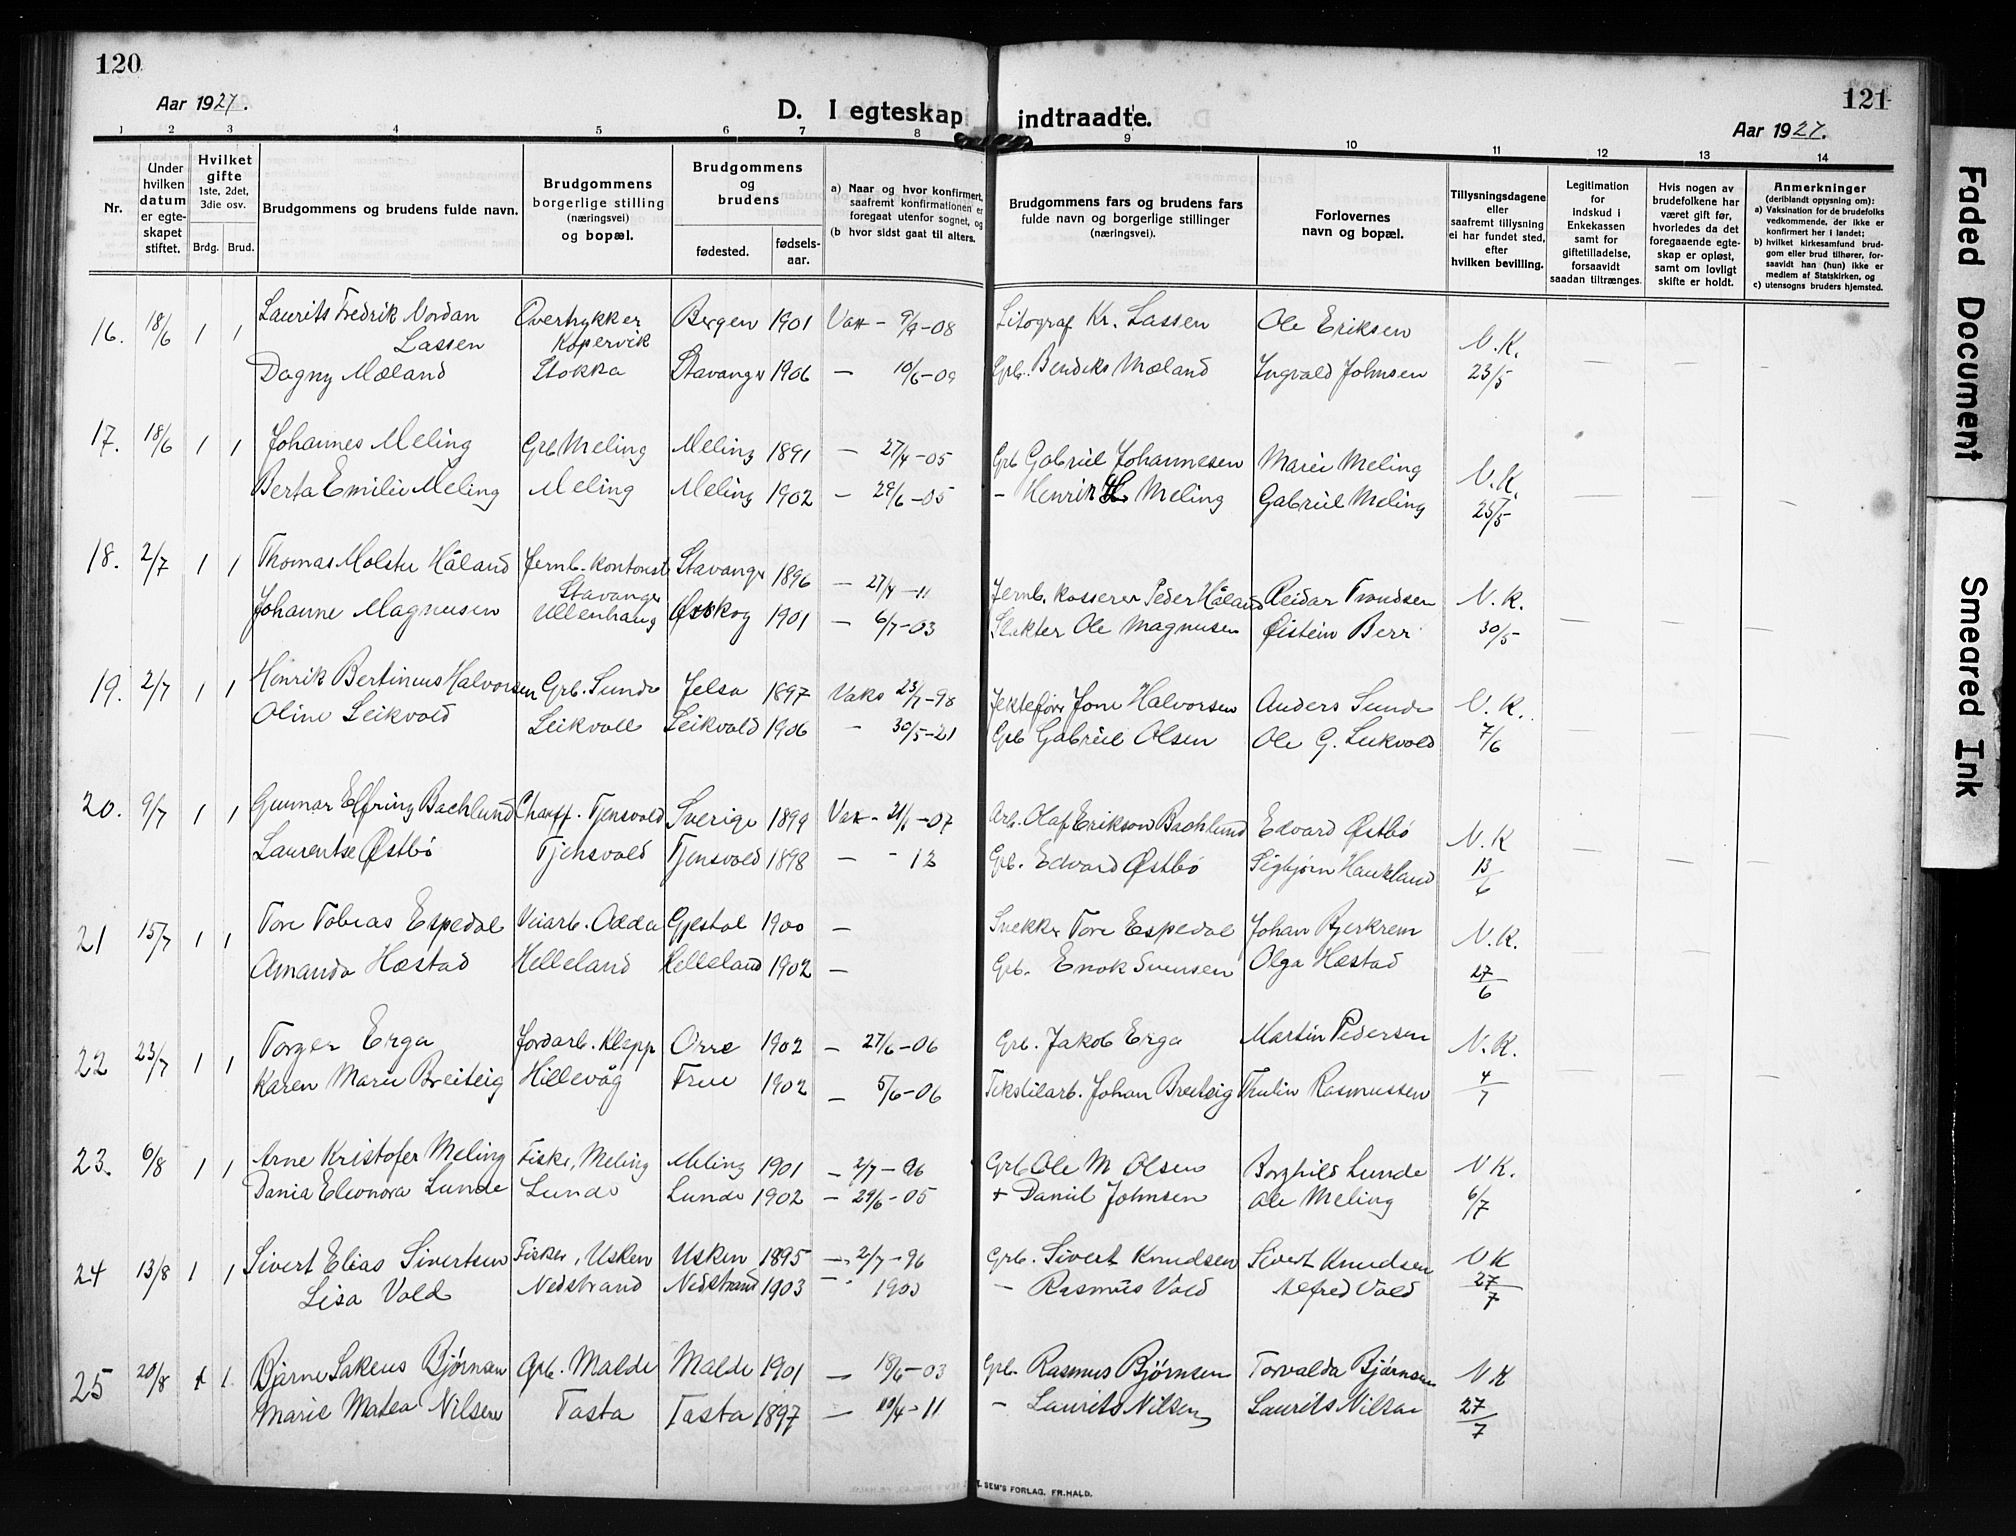 120
Aar 1927.
D. I egteskap indtraadte.
121
Aar 1927.
1 2 3 4 5 6 7 8 9 10 11 12 13 14
Nr.
Under hvilken datum er egte-skapet stiftet.
Hvilket gifte 1ste, 2det, 3die osv.
Brdg. Brud.
Brudgommens og brudens fulde navn.
Brudgommens borgerlige stilling (næringsvei) og bopæl.
Brudgommens og brudens
fødested. fødsels-aar.
a) Naar og hvor konfirmert, saafremt konfirmationen er foregaat utenfor sognet, og
(b hvor sidst gaat til alters.
Brudgommens fars og brudens fars fulde navn og borgerlige stillinger (næringsvei).
Forlovernes navn og bopæl.
Tillysningsdagene eller saafremt tillysning ei har fundet sted, efter hvilken bevilling.
Legitimation for indskud i Enkekassen samt for giftetilladelse, forsaavidt saadan tiltrænges.
Hvis nogen av brudefolkene har været gift før, hvorledes da det foregaaende egte-skap er opløst, samt om lovligt skifte er holdt.
Anmerkninger (deriblandt opysning om):
a) Vaksination for de brudefolks vedkommende, der ikke er konfirmert her i landet;
b) hvilket kirkesamfund brud-gom eller brud tilhører, for-saavidt han (hun) ikke er medlem af Statskirken, og
c) utensogns bruders hjemsted.
16. 18/6 1 1 Laurits Fredrik Nordan Lassen Overtrykker Kopervik Bergen 1901 Vax - 9/9-08 Litograf Kr. Lassen Ole Eriksen N.K.
Dagny Mæland Stokka Stavanger 1906 — 10/6-09 Grb. Bendiks Mæland Ingvald Johnsen 23/5 — — —
17. 18/6 1 1 Johannes Meling Grb Meling Meling 1891 — 27/4-05 Grb Gabriel Johannesen Marie Meling N.K.
Berta Emilie Meling Meling Meling 1902 — 29/6-05 - Henrik H. Meling Gabriel Meling 25/5 — — —
18. 2/7 1 1 Thomas Molstu Håland Jernb. kontorist Stavanger Stavanger 1896 — 27/4-11 Jernb. kasserer Peder Håland Reidar Trondsen N.K.
Johanne Magnusen Ullenhaug Ørskog 1901 — 6/7-03 Slakter Ole Magnusen Øistein Berr 30/5 — — —
19. 2/7 1 1 Henrik Bertinius Halvorsen Grb. Sunde Jelsa 1897 Vaks 23/7-98 Jektefører Jone Halvorsen Anders Sunde N.K.
Oline Leikvold Leikvoll Leikvold 1906 — 30/5-21 Grb Gabriel Olsen Ole G. Leikvold 7/6 — — —
20. 9/7 1 1 Gunnar Elfring Bachlund Chauff. Tjensvold Sverige 1899 Vax - 21/6-07 Arb. Olaf Erikson Bachlund Edvard Østbø N.K
Laurentse Østbø Tjensvold Tjensvold 1898 — - 12 Grb. Edvard Østbø Sigbjørn Haukland 13/6 — — —
21 15/7 1 1 Tore Tobias Espedal Veiarb. Odda Gjestal 1900 — Snekker Tore Espedal Johan Bjerkrem N.K.
Amanda Hæstad Helleland Helleland 1902 — Grb. Enok Svensen Olga Hæstad 27/6 — — —
22 23/7 1 1 Torger Erga Jordarb. Klepp Orre 1902 — 27/6-06 Grb. Jakob Erga Martin Pedersen N.K.
Karen Marie Breiteig Hillevåg Frue 1902 — 5/6-06 Tekstilarb. Johan Breiteig Thulin Rasmussen 4/7 — — —
23. 6/8 1 1 Arne Kristofer Meling Fisker, Meling Meling 1901 — 2/7-96 Grb Ole M Olsen Borghild Lunde N K.
Dania Eleonora Lunde Lunde Lunde 1902 — 29/6-05 + Daniel Johnsen Ole Meling 6/7
24 13/8 1 1 Sivert Elias Sivertsen Fisker, Usken Usken 1895 — 2/7-96 Grb. Sivert Knudsen Sivert Knudsen N K
Lisa Vold Nedstrand Nedstrand 1903 — 1900 — Rasmus Vold Alfred Vold 27/7
25 20/8 1 1 Bjarne Sakeus Bjørnsen Grb. Malde Malde 1901 — 18/6-03 Grb. Rasmus Bjørnsen Torvalda Bjørnsen N K
Marie Matea Nilsen Tasta Tasta 1897 — 10/4-11 — Laurits Nilsen Laurits Nilsen 27/7
SEM'S FORLAG. FR.HALD.
Faded Document
Smeared Ink